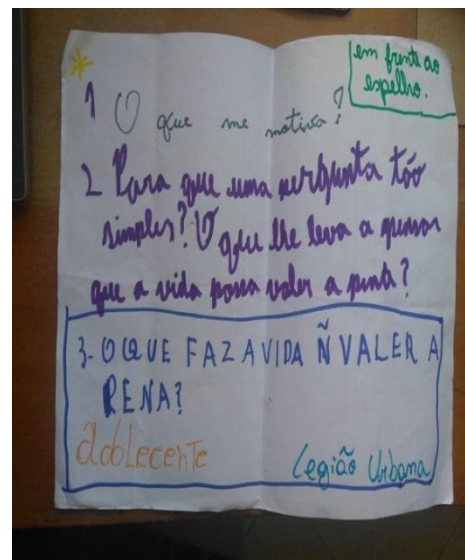 em frente ao
espelho.
1 O que me motiva?
2 Para que uma pergunta tão
simples? O que lhe leva a pensar
que a vida possa valer a pena?
3- O QUE FAZ A VIDA Ñ VALER A
PENA?
adolecente
Legião Urbana